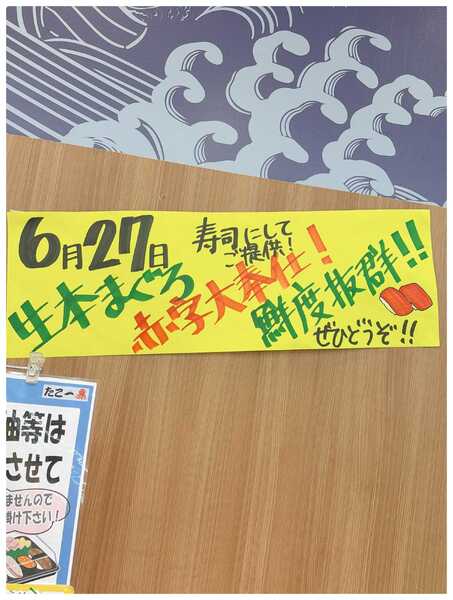 6月27日
寿司にして
ご提供!
生本まぐろ
赤字大奉仕!
鮮度抜群!!
ぜひどうぞ!!
たこ一
油等は
させて
ませんので
掛け下さい!